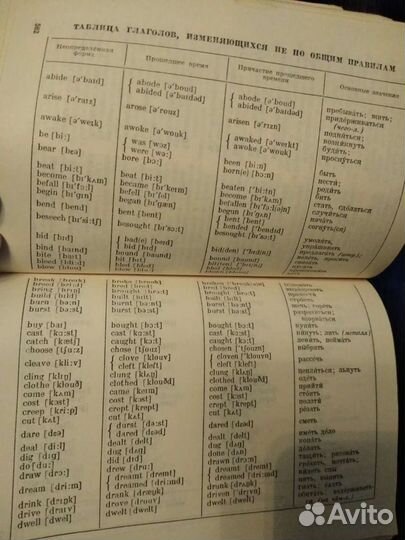 362
ТАБЛИЦА ГЛАГОЛОВ, ИЗМЕНЯЮЩИХСЯ НЕ ПО ОБЩИМ ПРАВИЛАМ
Неопределённая форма Прошедшее время Причастие прошедшего времени Основные значения
abide [ə'baɪd] abode [ə'boud] abode [ə'boud] пребывать; жить;
abided [ə'baɪdəd] abided [ə'baɪdəd] придерживаться
arise [ə'raɪz] arose [ə'rouz] arisen [ə'rɪzn] подняться;
возникнуть
awoke [ə'wouk] awaked [ə'weɪkt] будить;
awake [ə'weɪk] awoke [ə'wouk] проснуться
be [bi:] was [wɔz] been [bi:n] быть
were [wə:]
bear [bɛə] bore [bɔ:] born(e) [bɔ:n] нести;
родить
beat [bi:t] beat [bi:t] beaten ['bi:tn] бить
become [bɪ'kʌm] became [bɪ'keɪm] become [bɪ'kʌm] стать, сделаться
befall [bɪ'fɔ:l] befell [bɪ'fel] случиться
begin [bɪ'gɪn] began [bɪ'gæn] begun [bɪ'gʌn] начать
bend [bend] bent [bent] bent [bent] согнуть(ся)
bended ['bendɪd]
beseech [bɪ'si:tʃ] besought [bɪ'sɔ:t] besought [bɪ'sɔ:t] умолять,
упрашивать
bid [bɪd] bad(e) [beɪd] bid(den) ['bɪdn] предлагать
bid [bɪd]
bind [baɪnd] bound [baund] bound [baund]
bite [baɪt] bit [bɪt]
build [bɪld] built [bɪlt] built [bɪlt] строить
burn [bə:n] burnt [bə:nt] burnt [bə:nt]
burst [bə:st] burst [bə:st] burst [bə:st]
buy [baɪ] bought [bɔ:t] bought [bɔ:t] купить
cast [kɑ:st] cast [kɑ:st] cast [kɑ:st] кинуть; лить (металл)
catch [kætʃ] caught [kɔ:t] caught [kɔ:t] ловить, поймать
choose [tʃu:z] chose [tʃouz] chosen [tʃouzn] выбрать
cleave [kli:v] clove [klouv] cloven [klouvn] рассечь
cleft [kleft] cleft [kleft]
cling [klɪŋ] clung [klʌŋ] clung [klʌŋ] цепляться; льнуть
clothe [klouð] clothed [klouðd] clothed [klouðd] одеть
come [kʌm] came [keɪm] come [kʌm] прийти
cost [kɔst] cost [kɔst] cost [kɔst] стоить
creep [kri:p] crept [krept] crept [krept] ползти
cut [kʌt] cut [kʌt] cut [kʌt] резать
dare [dɛə] durst [də:st] dared [dɛəd] сметь
dared [dɛəd]
deal [di:l] dealt [delt] dealt [delt] иметь дело
dig [dɪg] dug [dʌg] dug [dʌg] копать
do [du:] did [dɪd] done [dʌn] делать
draw [drɔ:] drew [dru:] drawn [drɔ:n] тащить; рисовать
dream [dri:m] dreamt [dremt] dreamt [dremt] грезить, мечтать;
dreamed dreamed видеть сны
drink [drɪŋk] drank [dræŋk] drunk [drʌŋk] пить, выпить
drive [draɪv] drove [drouv] driven ['drɪvn] гнать; ехать
dwell [dwel] dwelt [dwelt] dwelt [dwelt]
Avito